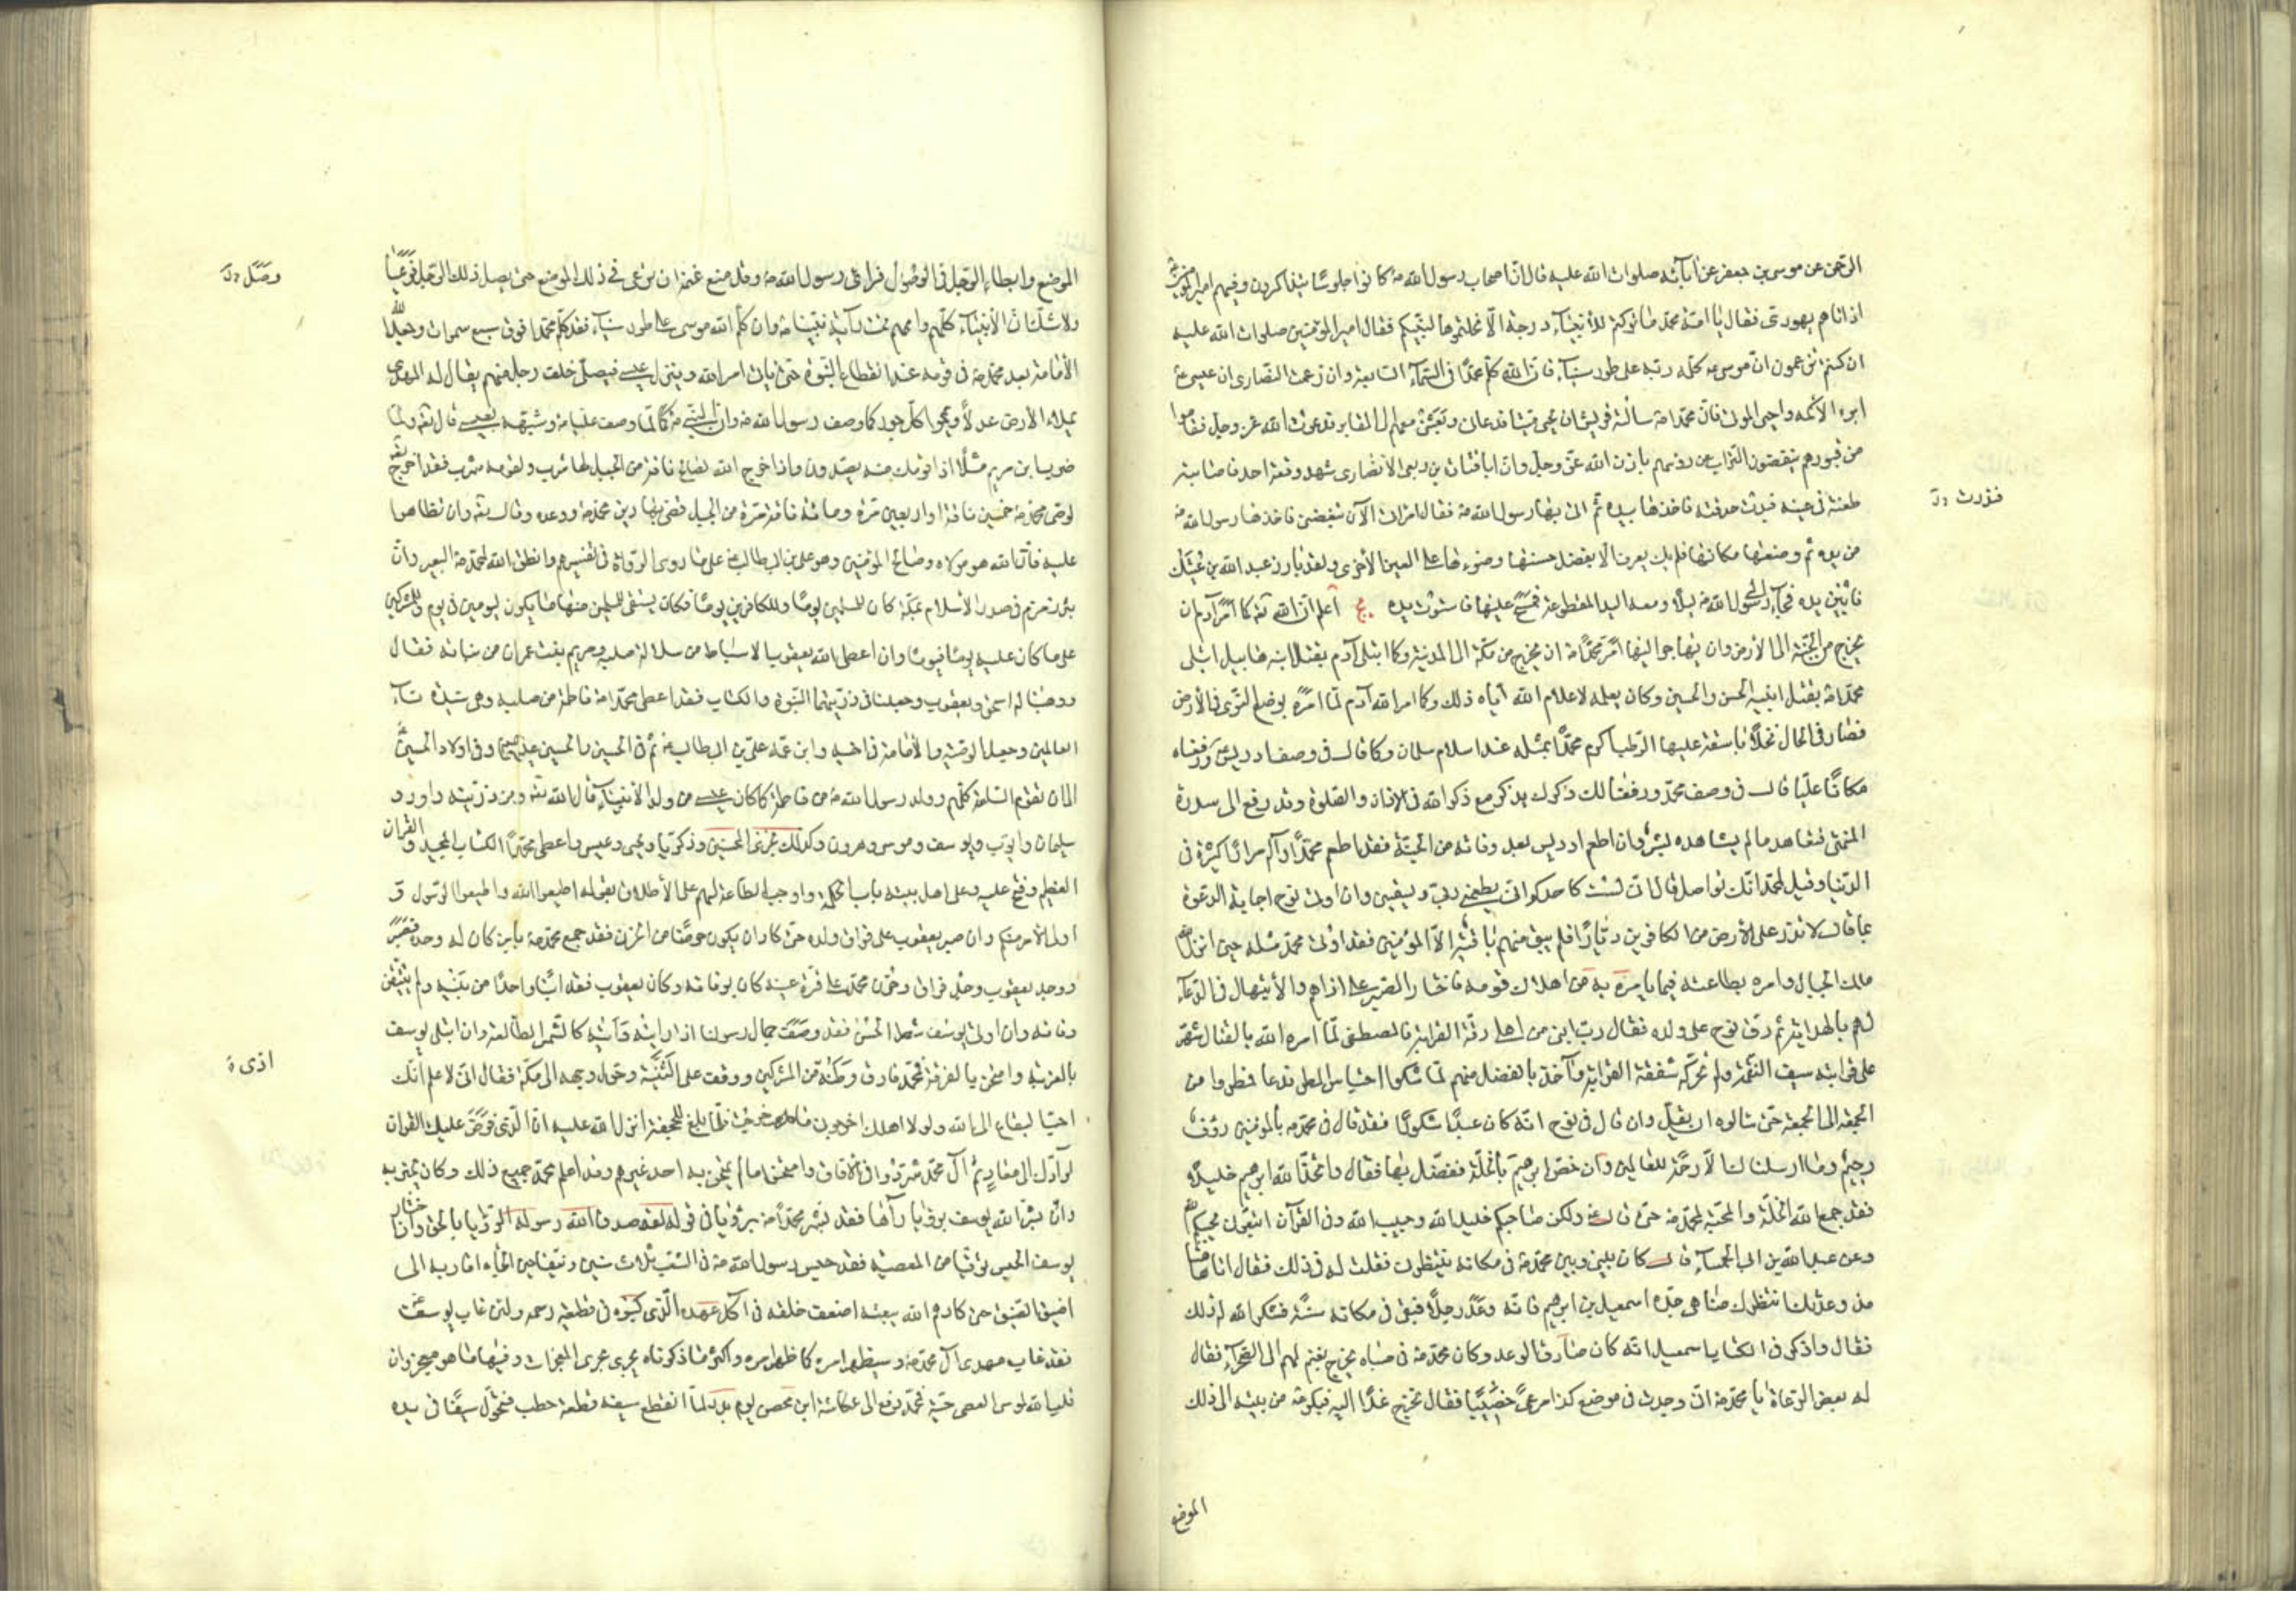 الرحمن عن موسى بن جعفر عن آبائه صلوات الله عليه قال ان اصحاب رسول الله ص كانوا جلوسًا يتذاكرون وفيهم امير المؤمنين
اذ اتاهم يهودى فقال يا امة محمد ما تركتم للأنبياء درجة الّا نحلتموها لنبيكم فقال امير المؤمنين صلوات الله عليه
ان كنتم تزعمون ان موسى ع كلّمه ربّه على طور سيناء فان الله كلّم محمدًا فى السماء السابعة وان زعمت النصارى ان عيسى ع
ابرء الأكمه واحيى الموتى فان محمدا ص سألته قريش ان يحيى ميتا فدعا عليا وبعثه معهم الى المقابر فدعوت الله عز وجل فقاموا
من قبورهم ينفضون التراب عن رؤسهم باذن الله عز وجل وان ابا قتادة بن ربعى الأنصارى شهد وقعة احد فاصابته
طعنة فى عينه فبدت حدقته فاخذها بيده ثم اتى بها رسول الله ص فقال امرأتى الآن تبغضنى فاخذها رسول الله ص
من يده ثم وضعها مكانها فلم يك يعرف الّا بفضل حسنها وضوءها على العين الأخرى ولقد بارز عبد الله بن عتيك
فابين يده فجاء الى رسول الله ص ليلًا ومعه اليد المقطوعة فمسح عليها فاستوت يده يج اعلم ان الله تع كما امر آدم ان
يخرج من الجنة الى الأرض وان يهاجر اليها امر محمدًا ص ان يخرج من مكة الى المدينة وكما ابتلى آدم بقتل ابنه هابيل ابتلى
محمدا ص بقتل ابنيه الحسن والحسين وكان يعلمه لاعلام الله اياه ذلك وكما امر الله آدم لمّا امره بوضع النوى فى الأرض
فصار فى الحال نخلًا باسقة عليها الرطب اكرم محمدًا بمثله عند اسلام سلمان وكما قال فى وصف ادريس ورفعناه
مكانًا عليّا قال فى وصف محمد ورفعنا لك ذكرك يذكر مع ذكر الله فى الاذان والصلوة وقد رفع الى سدرة
المنتهى فشاهد ما لم يشاهده بشر وان اطعم ادريس بعد وفاته من الجنة فقد اطعم محمدًا وآله مرارًا كثيرة فى
الدنيا وقيل لمحمد انك تواصل قال انى لست كاحدكم انى يطعمنى ربى ويسقينى وان اوتى نوح اجابة الدعوة
بما قال لا تذر على الأرض من الكافرين ديّارًا فلم يبق منهم باقية الّا المؤمنين فقد اوتى محمد مثله حين انزل الله
ملك الجبال وامره بطاعته فيما يامره به من اهلاك قومه فاختار الصبر على اذاهم والأبتهال فى الدعاء
لهم بالهداية ثم رقّ نوح على ولده فقال رب ابنى من اهلى رقّة القرابة فالمصطفى لمّا امره الله بالقتال شهر
على قرابته سيف النقمة ولم تحركه شفقة القرابة وآخذ بالفضل منهم لمّا شكوا احتباس المطر فدعا فمطروا من
الجمعة الى الجمعة حتى سألوه ان يقلّ وان قال فى نوح انه كان عبدًا شكورًا فقد قال فى محمد ص بالمؤمنين رؤف
رحيم وما ارسلناك الّا رحمة للعالمين وان خصّ ابرهيم بالخلّة ففضّل بها فقال واتخذ الله ابرهيم خليلًا
فقد جمع الله الخلّة والمحبة لمحمد ص حتى قال ع ولكن صاحبكم خليل الله وحبيب الله وفى القرآن اتبعونى يحببكم الله
وعن عبد الله بن ابى الحمساء قال كان بينى وبين محمد ص فى مكانه ينتظرنى فقلت له فى ذلك فقال انا هاهنا
منذ وعدتك انتظرك ضاهى جدّه اسمعيل بن ابرهيم فانه وعد رجلًا فبقى فى مكانه سنة فشكر الله له ذلك
فقال واذكر فى الكتاب اسمعيل انه كان صادق الوعد وكان محمد ص فى صباه يخرج بغنم لهم الى الصحراء فقال
له بعض الرعاة يا محمد ص انى وجدت فى موضع كذا مرعى خصيبًا فقال نخرج غدًا اليه فبكر ص من بيته الى ذلك
الموضع
فندرت
الموضع وابطاء الرجل فى الوصول فرأى رسول الله ص وقد منع غنمه ان ترعى فى ذلك الموضع حتى يصل ذلك الرجل فرعيا
ولا شك ان الأنبياء كلهم واممهم تحت راية نبينا ص وان كلّم الله موسى على طور سيناء فقد كلّم محمدا فوق سبع سموات وجعل الله
الأمامة بعد محمد ص فى قومه عند انقطاع النبوة حتى يأتى امر الله وينزل عيسى فيصلّى خلف رجل منهم يقال له المهدى
يملاء الأرض عدلًا ويمحوا كل جور كما وصف رسول الله ص وان النبى ص كما وصف عليا ع وشبّهه بعيسى قال تع ولمّا
ضرب ابن مريم مثلًا اذا قومك منه يصدون واذا خرج الله لصالح ناقة من الجبل لها شرب ولقومه شرب فقد اخرج تع
لوصى محمد ص خمسين ناقة او اربعين مرة ومائة ناقة مرة من الجبل قضى بها دين محمد ص ووعده وقال تع وان تظاهرا
عليه فان الله هو مولاه وصالح المؤمنين وهو على بن ابى طالب ع على ما روى الرواة فى تفسيرهم وانطق الله لمحمد ص البعير وان
بئر زمزم فى صدر الأسلام بمكة كان للمسلمين يومًا وللكافرين يومًا فكان يستقى للمسلمين منها ما يكون ليومين فى يوم وللمشركين
على ما كان عليه يومًا فيومًا وان اعطى الله يعقوب الاسباط من سلالة صلبه ومريم بنت عمران من بناته فقال
ووهبنا له اسحق ويعقوب وجعلنا فى ذريتهما النبوة والكتاب فقد اعطى محمدا ص فاطمة من صلبه وهى سيدة نساء
العالمين وجعل الوصية والأمامة فى اخيه وابن عمه على بن ابى طالب ع ثم فى الحسن والحسين عليهما وفى اولاد الحسين
الى ان تقوم الساعة كلهم ولد رسول الله ص من فاطمة كما كان عيسى من ولد الأنبياء قال الله تع ومن ذريته داود و
سليمان وايوب ويوسف وموسى وهرون وكذلك نجزى المحسنين وذكريا ويحيى وعيسى واعطى محمدًا الكتاب المجيد والقرآن
العظيم وفتح عليه وعلى اهل بيته باب الحكمة واوجب الطاعة لهم على الأطلاق بقوله اطيعوا الله واطيعوا الرسول و
اولى الأمر منكم وان صبر يعقوب على فراق ولده حتى كاد ان يكون حرضًا من الحزن فقد فجع محمد ص بابن كان له وحده فصبر
ووجد يعقوب وجد فراق وحزن محمد على قرة عينه كان بوفاته وكان يعقوب فقد ابنًا واحدًا من بنيه ولم يتيقن
وفاته وان اوتى يوسف شطر الحسن فقد وصف جمال رسولنا اذا رأيته رأيته كالشمس الطالعة وان ابتلى يوسف
بالغربة وامتحن بالفرقة فمحمد فارق وطنه من المشركين ووقف على الثنية وحول وجهه الى مكة فقال انى لاعلم انّك
احب البقاع الى الله ولولا اهلك اخرجونى ما خرجت فلمّا بلغ الجحفة انزل الله عليه ان الذى فرض عليك القرآن
لرآدّك الى معاد ثم آل محمد شرّدوا فى الآفاق وامتحنوا ما لم يمتحن به احد غيرهم وقد اعلم محمد جميع ذلك وكان يخبر به
وان بشر الله يوسف برؤيا رآها فقد بشر محمدا ص برؤيا فى قوله لقد صدق الله رسوله الرؤيا بالحق وان اختار
يوسف الحبس توقيًا من المعصية فقد حبس رسول الله ص فى الشعب ثلاث سنين ونيفا حين الجأه اقاربه الى
اضيق الضيق حتى كادهم الله ببعثه اضعف خلقه فى اكل عهده الذى كتبوه فى قطيعة رحمه ولئن غاب يوسف ع
فقد غاب مهدى آل محمد ص وسيظهر امره كما ظهر امره واكثر ما ذكرناه يجرى مجرى المعجزات وفيها ما هو معجز وان
قلب الله لموسى العصى حيّة فمحمد دفع الى عكاشة ابن محصن يوم بدر لمّا انقطع سيفه قطعة حطب فتحول سيفًا فى يده
اذى